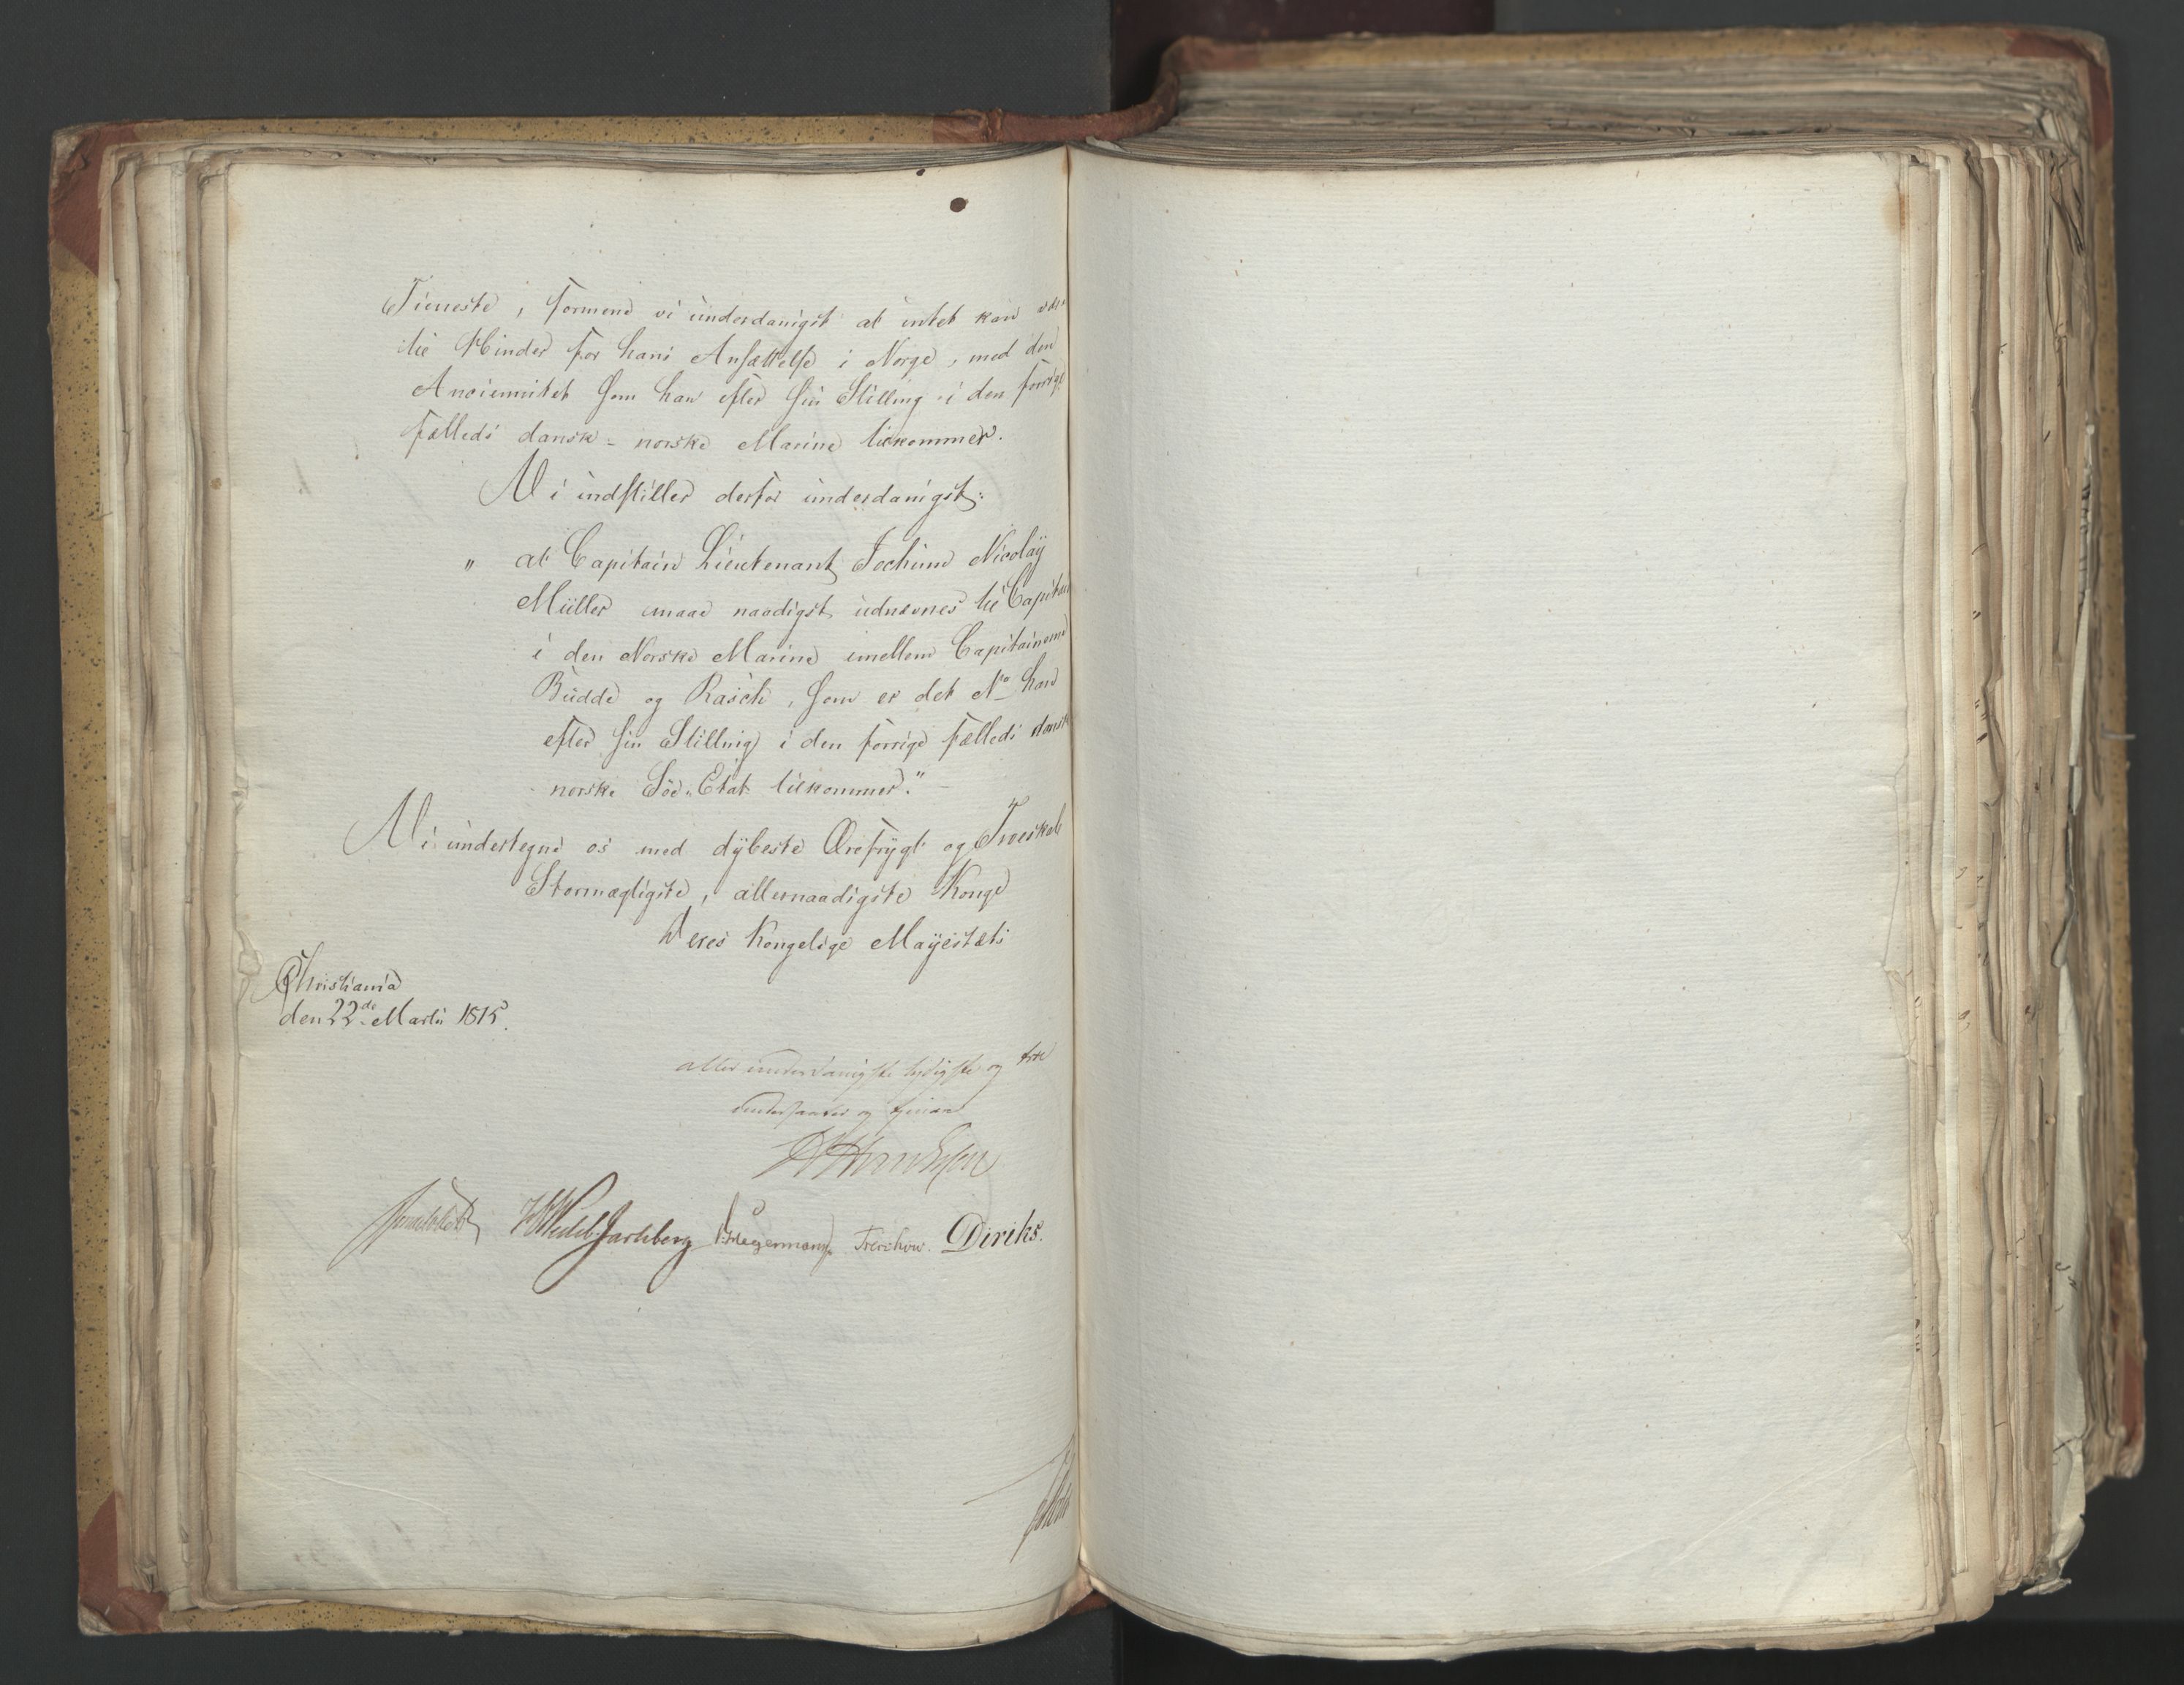 Tieneste, formene vi underdanigst at intet kan være
til Hinder for hans Ansættelse i Norge, med den
Anciennitet som han efter sin Stilling i den forrige
fælleds dansk-norske Marine tilkommer.
Vi indstiller derfor underdanigst:
" at Capitain Lieutenant Jochum Nicolaÿ
Müller maae naadigst udnævnes til Capitain
i den Norske Marine imellem Capitainerne
Budde og Rasch, som er det No han
efter sin Stilling i den forrige fælleds dansk
norske Söe-Etat tilkommer."
Vi undertegne os med dÿbeste Ærefrÿgt og Troeskab
Stormægtigste, allernaadigste Konge
Deres Kongelige Mayestæts
Christiania
den 22de Martii 1815.
allerunderdanigste lydigste og troe
undersaatter og tjenere
Sommerhielm Wedel Jarlsberg Hegermann Treschow. Diriks.